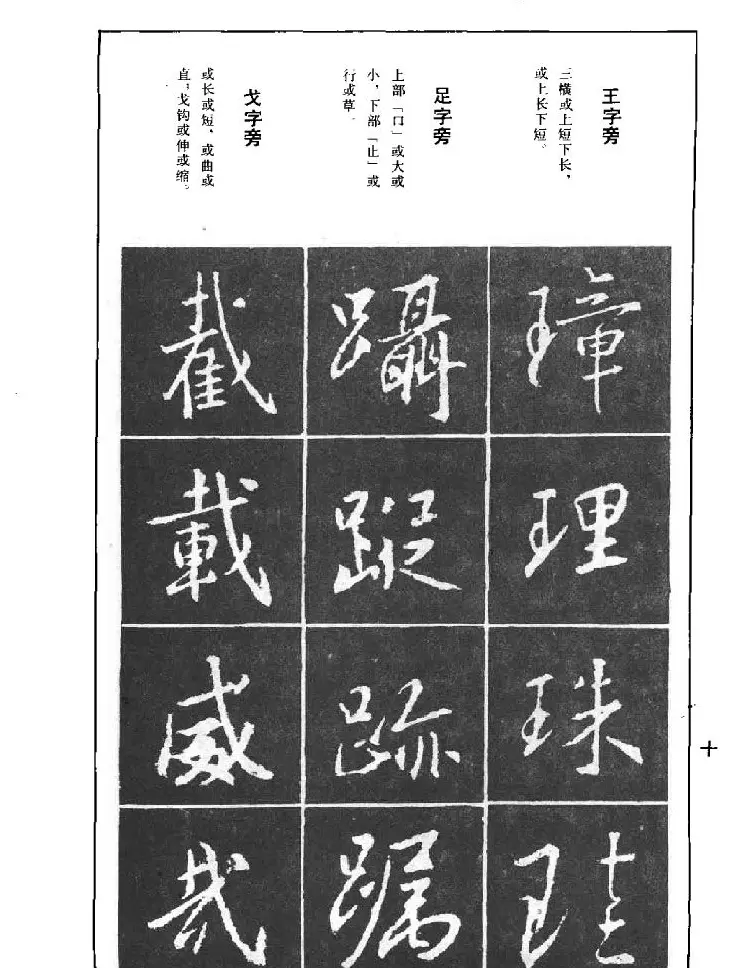 王字旁
三横或上短下长，
或上长下短。
璋
理
珠
珪
足字旁
上部「口」或大或
小，下部「止」或
行或草。
躡
蹤
跡
戈字旁
或长或短，或曲或
直，戈钩或伸或缩。
截
載
威